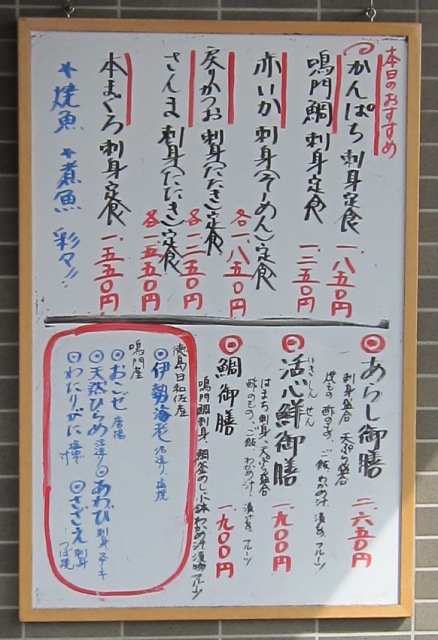 本日のおすすめ
かんぱち刺身定食 一、八五〇円
鳴門鯛刺身定食 一、二五〇円
赤いか刺身(そーめん)定食 各一、八五〇円
戻りかつお刺身(たたき)定食 各一、二五〇円
さんま刺身(たたき)定食 各一、五五〇円
本まぐろ刺身定食 一、五五〇円
焼魚 煮魚 彩々!!
あらし御膳 二、六五〇円
刺身盛合 天ぷら盛合
焼もの 酢のもの、ご飯、わかめ汁、漬物、フルーツ
活心鮮御膳 一、九〇〇円
はまち刺身、天ぷら盛合
酢のもの、ご飯、わかめ汁、漬物、フルーツ
鯛御膳 一、九〇〇円
鳴門鯛刺身、鯛釜めし、小鉢、わかめ汁、漬物、フルーツ
徳島日和佐産
伊勢海老 活造り、塩焼
鳴門産
おこぜ 唐揚
天然ひらめ 活造り あわび 刺身 ステーキ
わたりがに 塩ゆで 汁 さざえ 刺身 つぼ焼